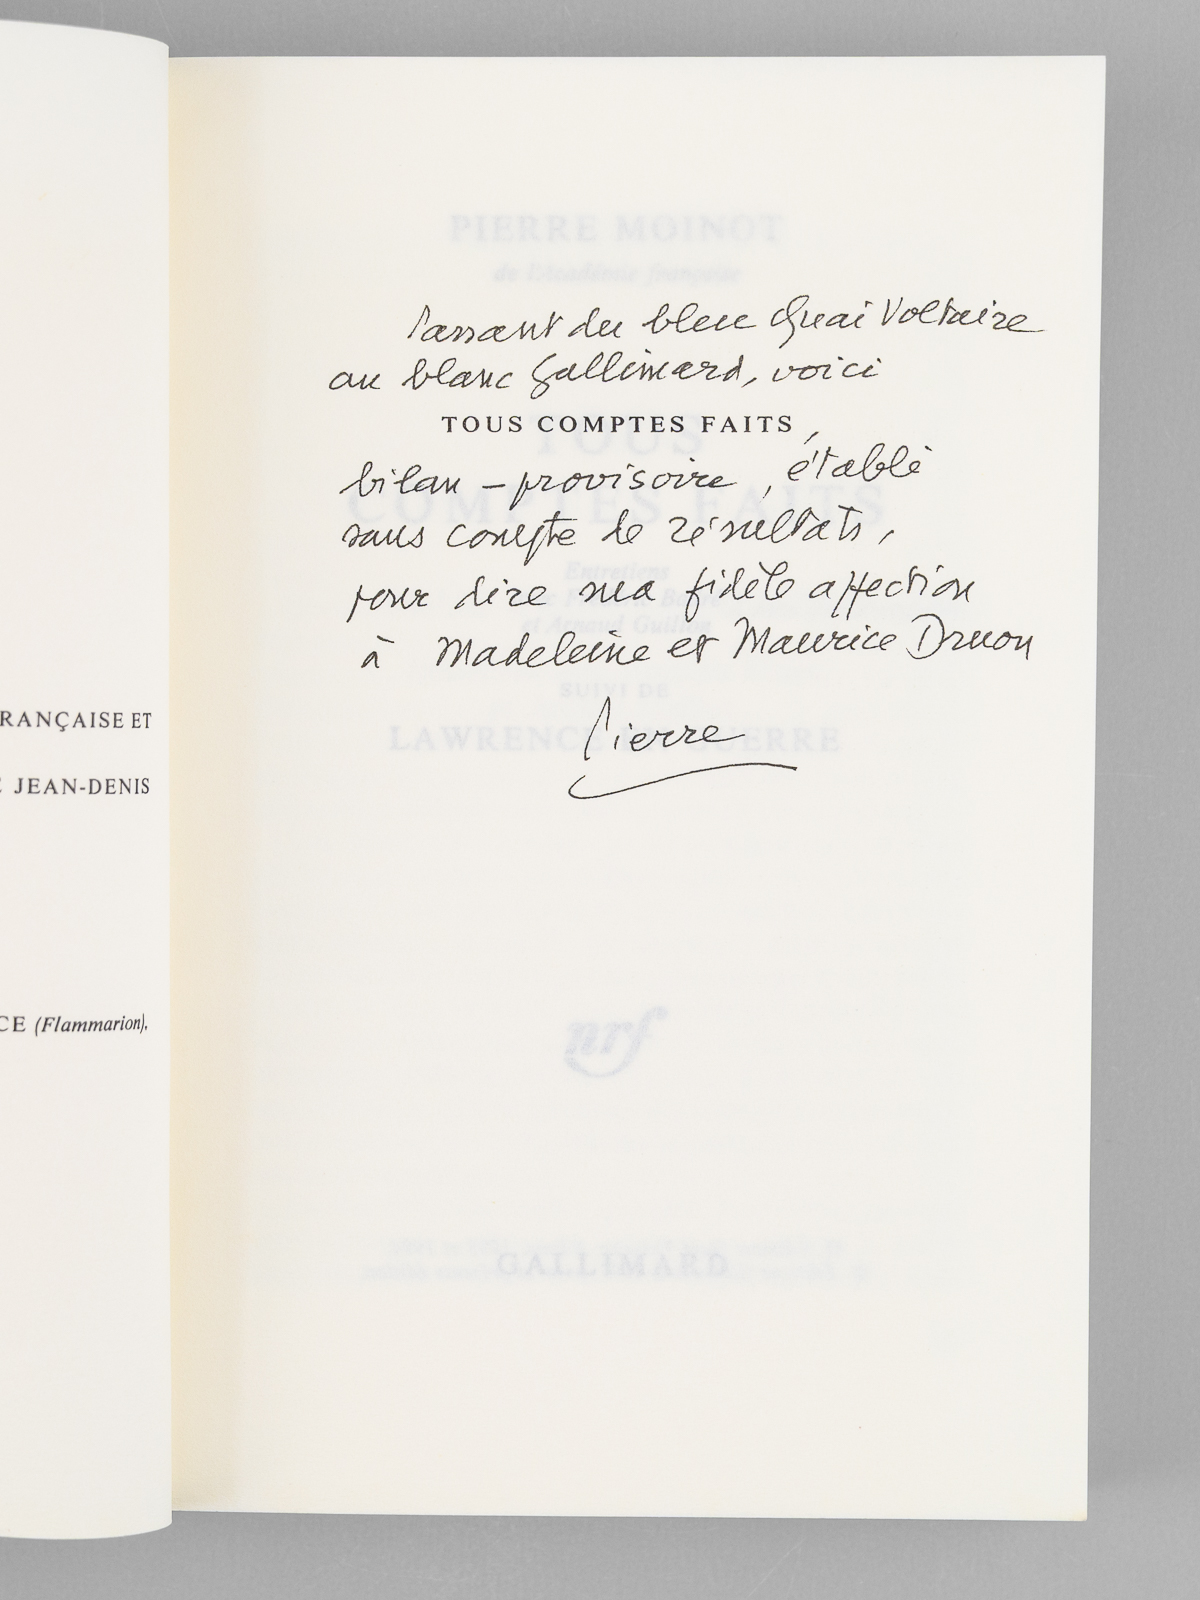 Passant du bleu Quai Voltaire
au blanc Gallimard, voici
TOUS COMPTES FAITS,
bilan – provisoire, établi
sans compte de résultats,
pour dire ma fidèle affection
à Madeleine et Maurice Druon
Pierre
RANÇAISE ET
JEAN-DENIS
CE (Flammarion),
PIERRE MOINOT
de l'Académie française
TOUS
COMPTES FAITS
Entretiens
et Arnaud Guillon
SUIVI DE
LAWRENCE EN GUERRE
nrf
GALLIMARD